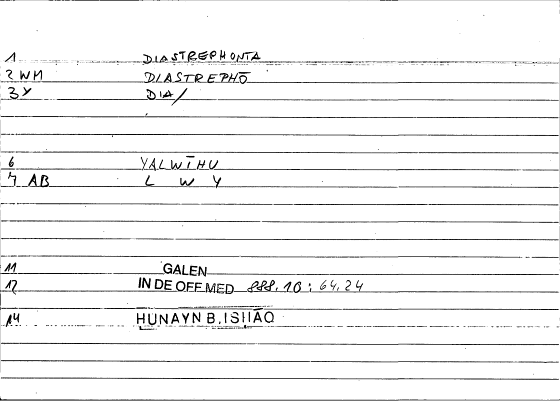 1 DIASTREPHONTA
2 WM DIASTREPHŌ
3 Y DIA/
6 YALWĪHU
7 AB L W Y
11 GALEN
12 IN DE OFF.MED 888,10 : 64,24
14 HUNAYN B.ISHĀQ